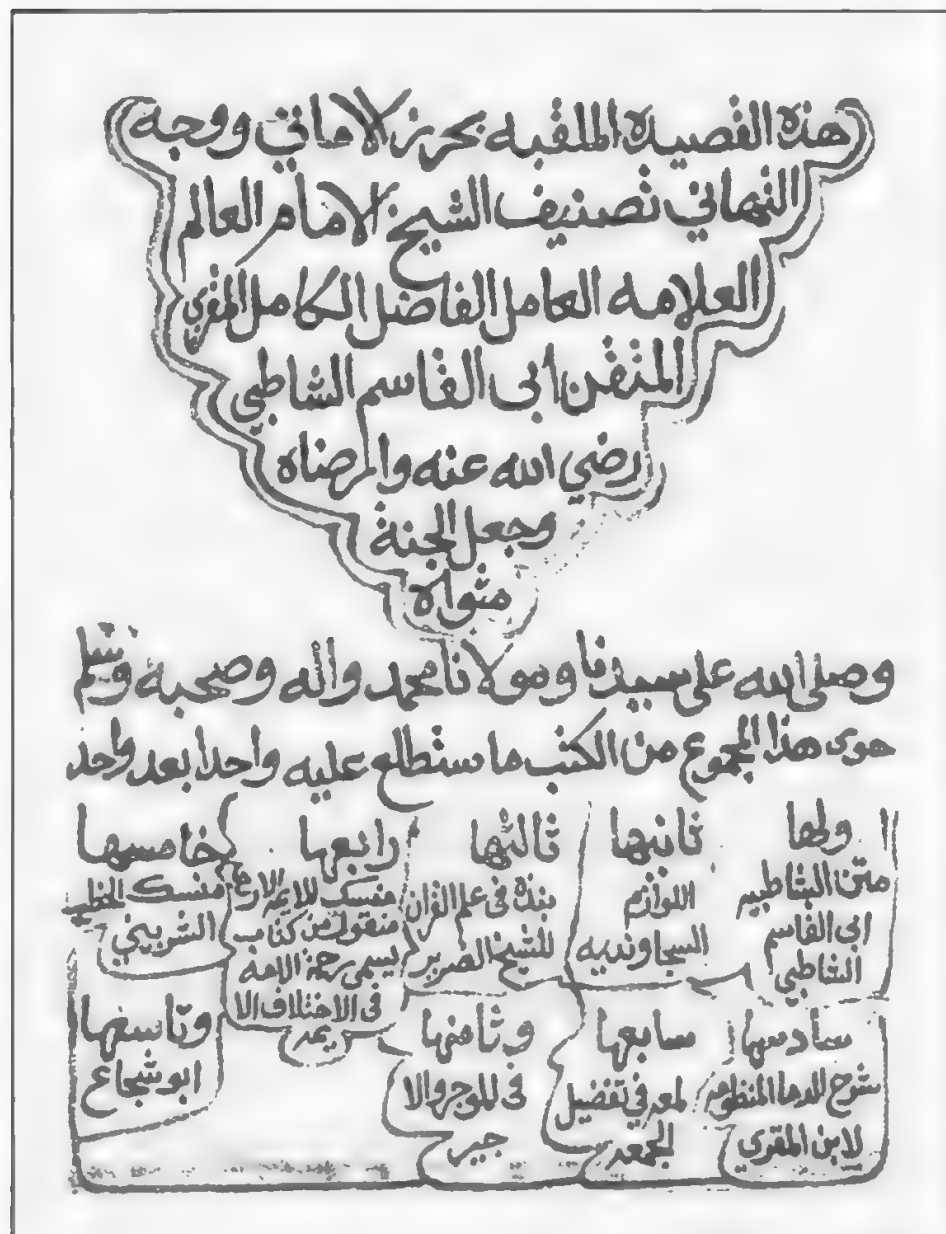 هذه القصيدة الملقبه بحرز الاماني ووجه
التهاني تصنيف الشيخ الامام العالم
العلامه العامل الفاضل الكامل المقري
المتقن ابى القاسم الشاطبي
رضي الله عنه وارضاه
وجعل الجنة
مثواه
وصلى الله على سيدنا ومولانا محمد واله وصحبه وسلم
حوى هذا المجموع من الكتب ما ستطلع عليه واحدا بعد واحد
ولها
متن الشاطبيه
ابى القاسم
الشاطبي
ثانيها
اللوازم
السجاونديه
ثالثها
نبذة في علم القران
للشيخ الضرير
رابعها
منسك للايمة الاربع
منقول من كتاب
يسمى رحمة الامة
فى الاختلاف الا
يمه
خامسها
منسك الخطيب
الشربيني
سادسها
شرح للدما المنظومة
لابن المقري
سابعها
لمعه في تفضيل
الجمعه
وثامنها
فى للوجر والا
جير
وتاسعها
ابو شجاع